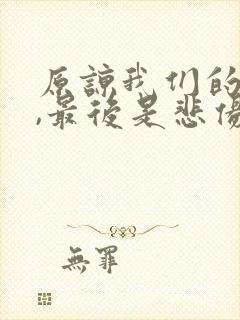 原諒我们的
,最後是悲傷
無罪